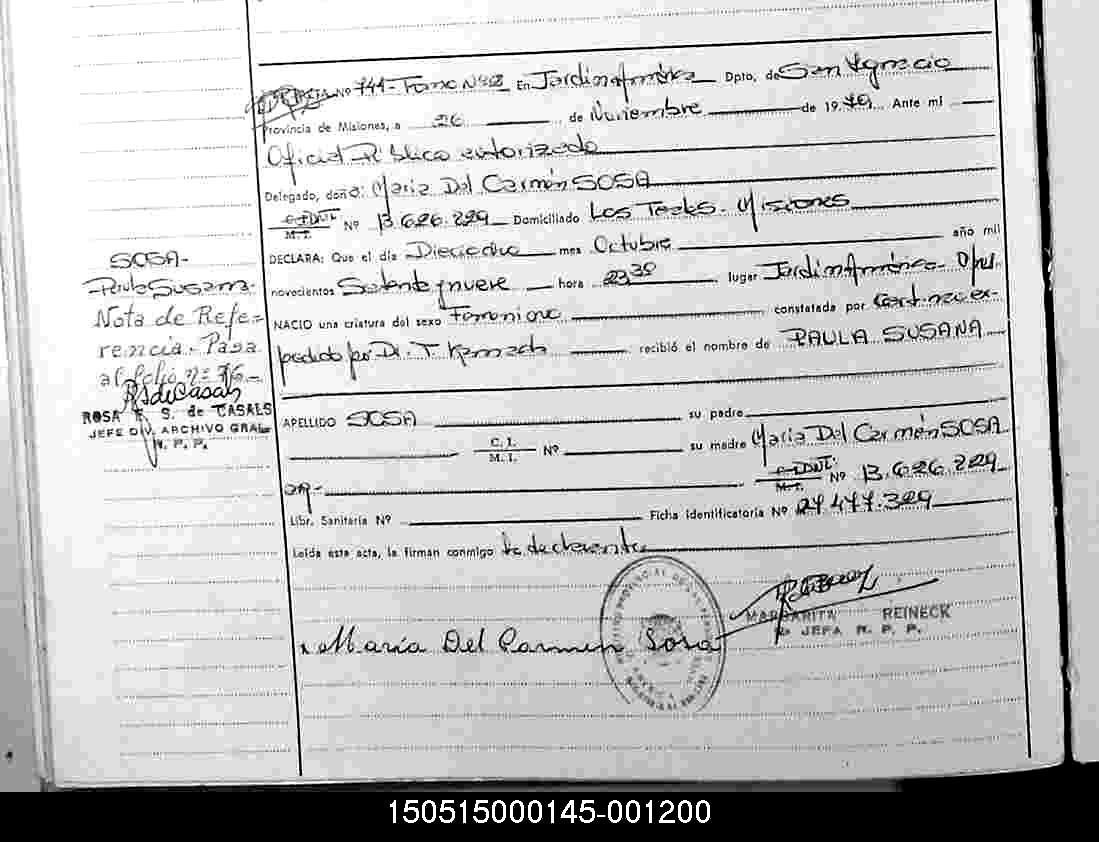 Nº 741 - Tomo Nº 2 En Jardin América Dpto, de San Ignacio
Provincia de Misiones, a 26 de Noviembre de 1979. Ante mi
Oficial Público autorizado
Delegado, doña: Maria Del Carmén SOSA
M. I. Nº 13.626.229 Domiciliado Los Teales - Misiones
DECLARA: Que el día Dieciocho mes Octubre año mil
novecientos Setenta y nueve hora 23 30 lugar Jardin América
NACIO una criatura del sexo Femenino constatada por
pedido por Dr. T. recibió el nombre de PAULA SUSANA
SOSA-
Paula Susana.
Nota de Refe=
rencia. Pasa
al folio nº 76-
ROSA E. S. de CASALS
JEFE DIV. ARCHIVO GRAL
R. P. P.
APELLIDO SOSA su padre
C. I.
M. I. Nº su madre Maria Del Carmén SOSA
M. I. Nº 13.626.229
Libr. Sanitaria Nº Ficha Identificatoria Nº 27.477.329
Leída ésta acta, la firman conmigo la declarante
MARGARITA REINECK
JEFA R. P. P.
María Del Carmen Sosa
150515000145-001200